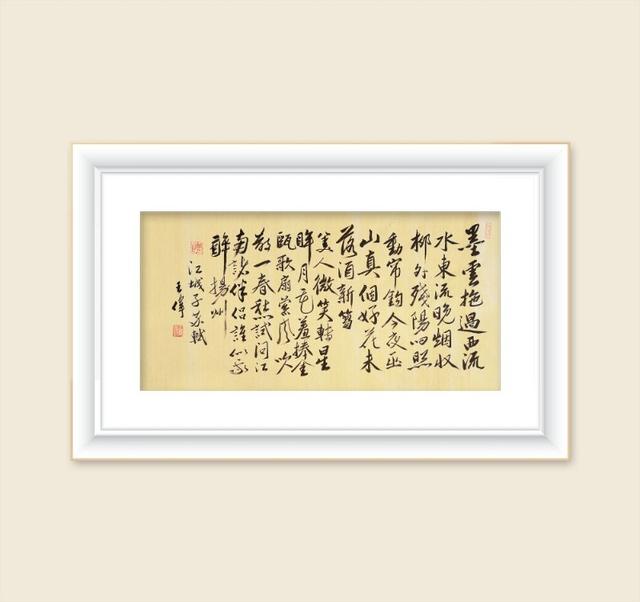 墨雲拖過西流
水東流晚烟收
柳外殘陽回照
動帘鈎今夜巫
山真個好花未
落酒新篘
美人微笑轉星
眸月花羞捧金
甌歌扇縈風吹
散一春愁試問江
南諸伴侶誰似我
醉揚州
江城子苏軾
王偉